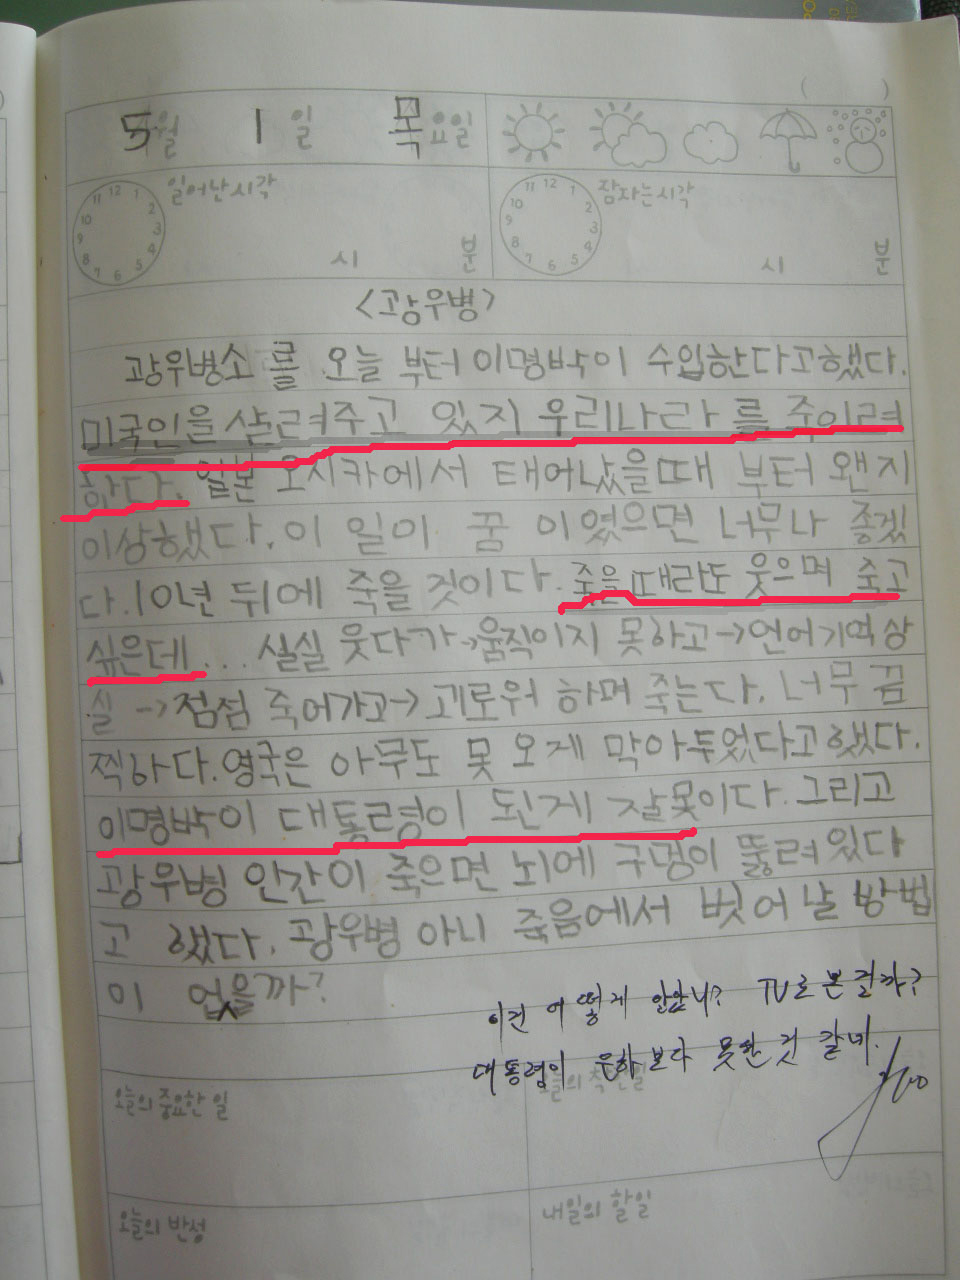 ( )
5월 1일 목요일
일어난시각 잠자는시각
11 12 1 11 12 1
10 2 10 2
9 3 9 3
8 4 8 4
7 6 5 7 6 5
시 분 시 분
<광우병>
광우병소 를 오늘 부터 이명박이 수입한다고했다.
미국인을 살려주고 있지 우리나라 를 죽이려
한다. 일본 오시카에서 태어났을때 부터 왠지
이상했다. 이 일이 꿈 이였으면 너무나 좋겠
다. 10년 뒤에 죽을 것이다. 죽을때라도 웃으며 죽고
싶은데... 실실 웃다가→움직이지 못하고→언어기억상
실 →점점 죽어가고→괴로워 하며 죽는다. 너무 끔
찍하다. 영국은 아무도 못 오게 막아두었다고했다.
이명박이 대통령이 된게 잘못이다. 그리고
광우병 인간이 죽으면 뇌에 구멍이 뚫려있다
고 했다. 광우병 아니 죽음에서 벗어 날 방법
이 없을까?
이건 어떻게 알았니? TV로 본걸까?
대통령이 은하보다 못한 것 같네.
오늘의 중요한 일 오늘의 착한일
오늘의 반성 내일의 할일